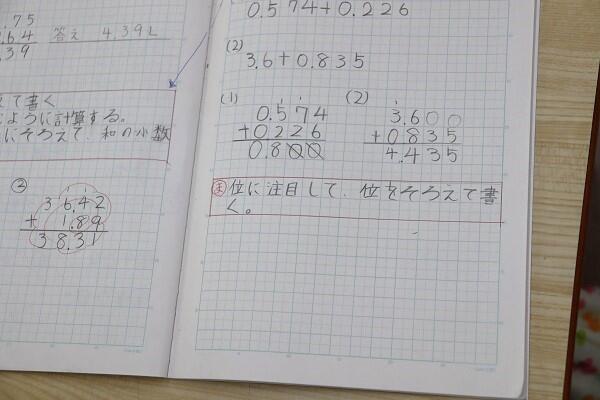 .75
.64
.39
答え 4.39L
て書く
ように計算する。
にそろえて、和の小数
②
36.42
+ 1.89
38.31
0.574+0.226
(2)
3.6+0.835
(1)
0.574
+0.226
0.800
(2)
3.600
+0.835
4.435
ま 位に注目して、位をそろえて書
く。